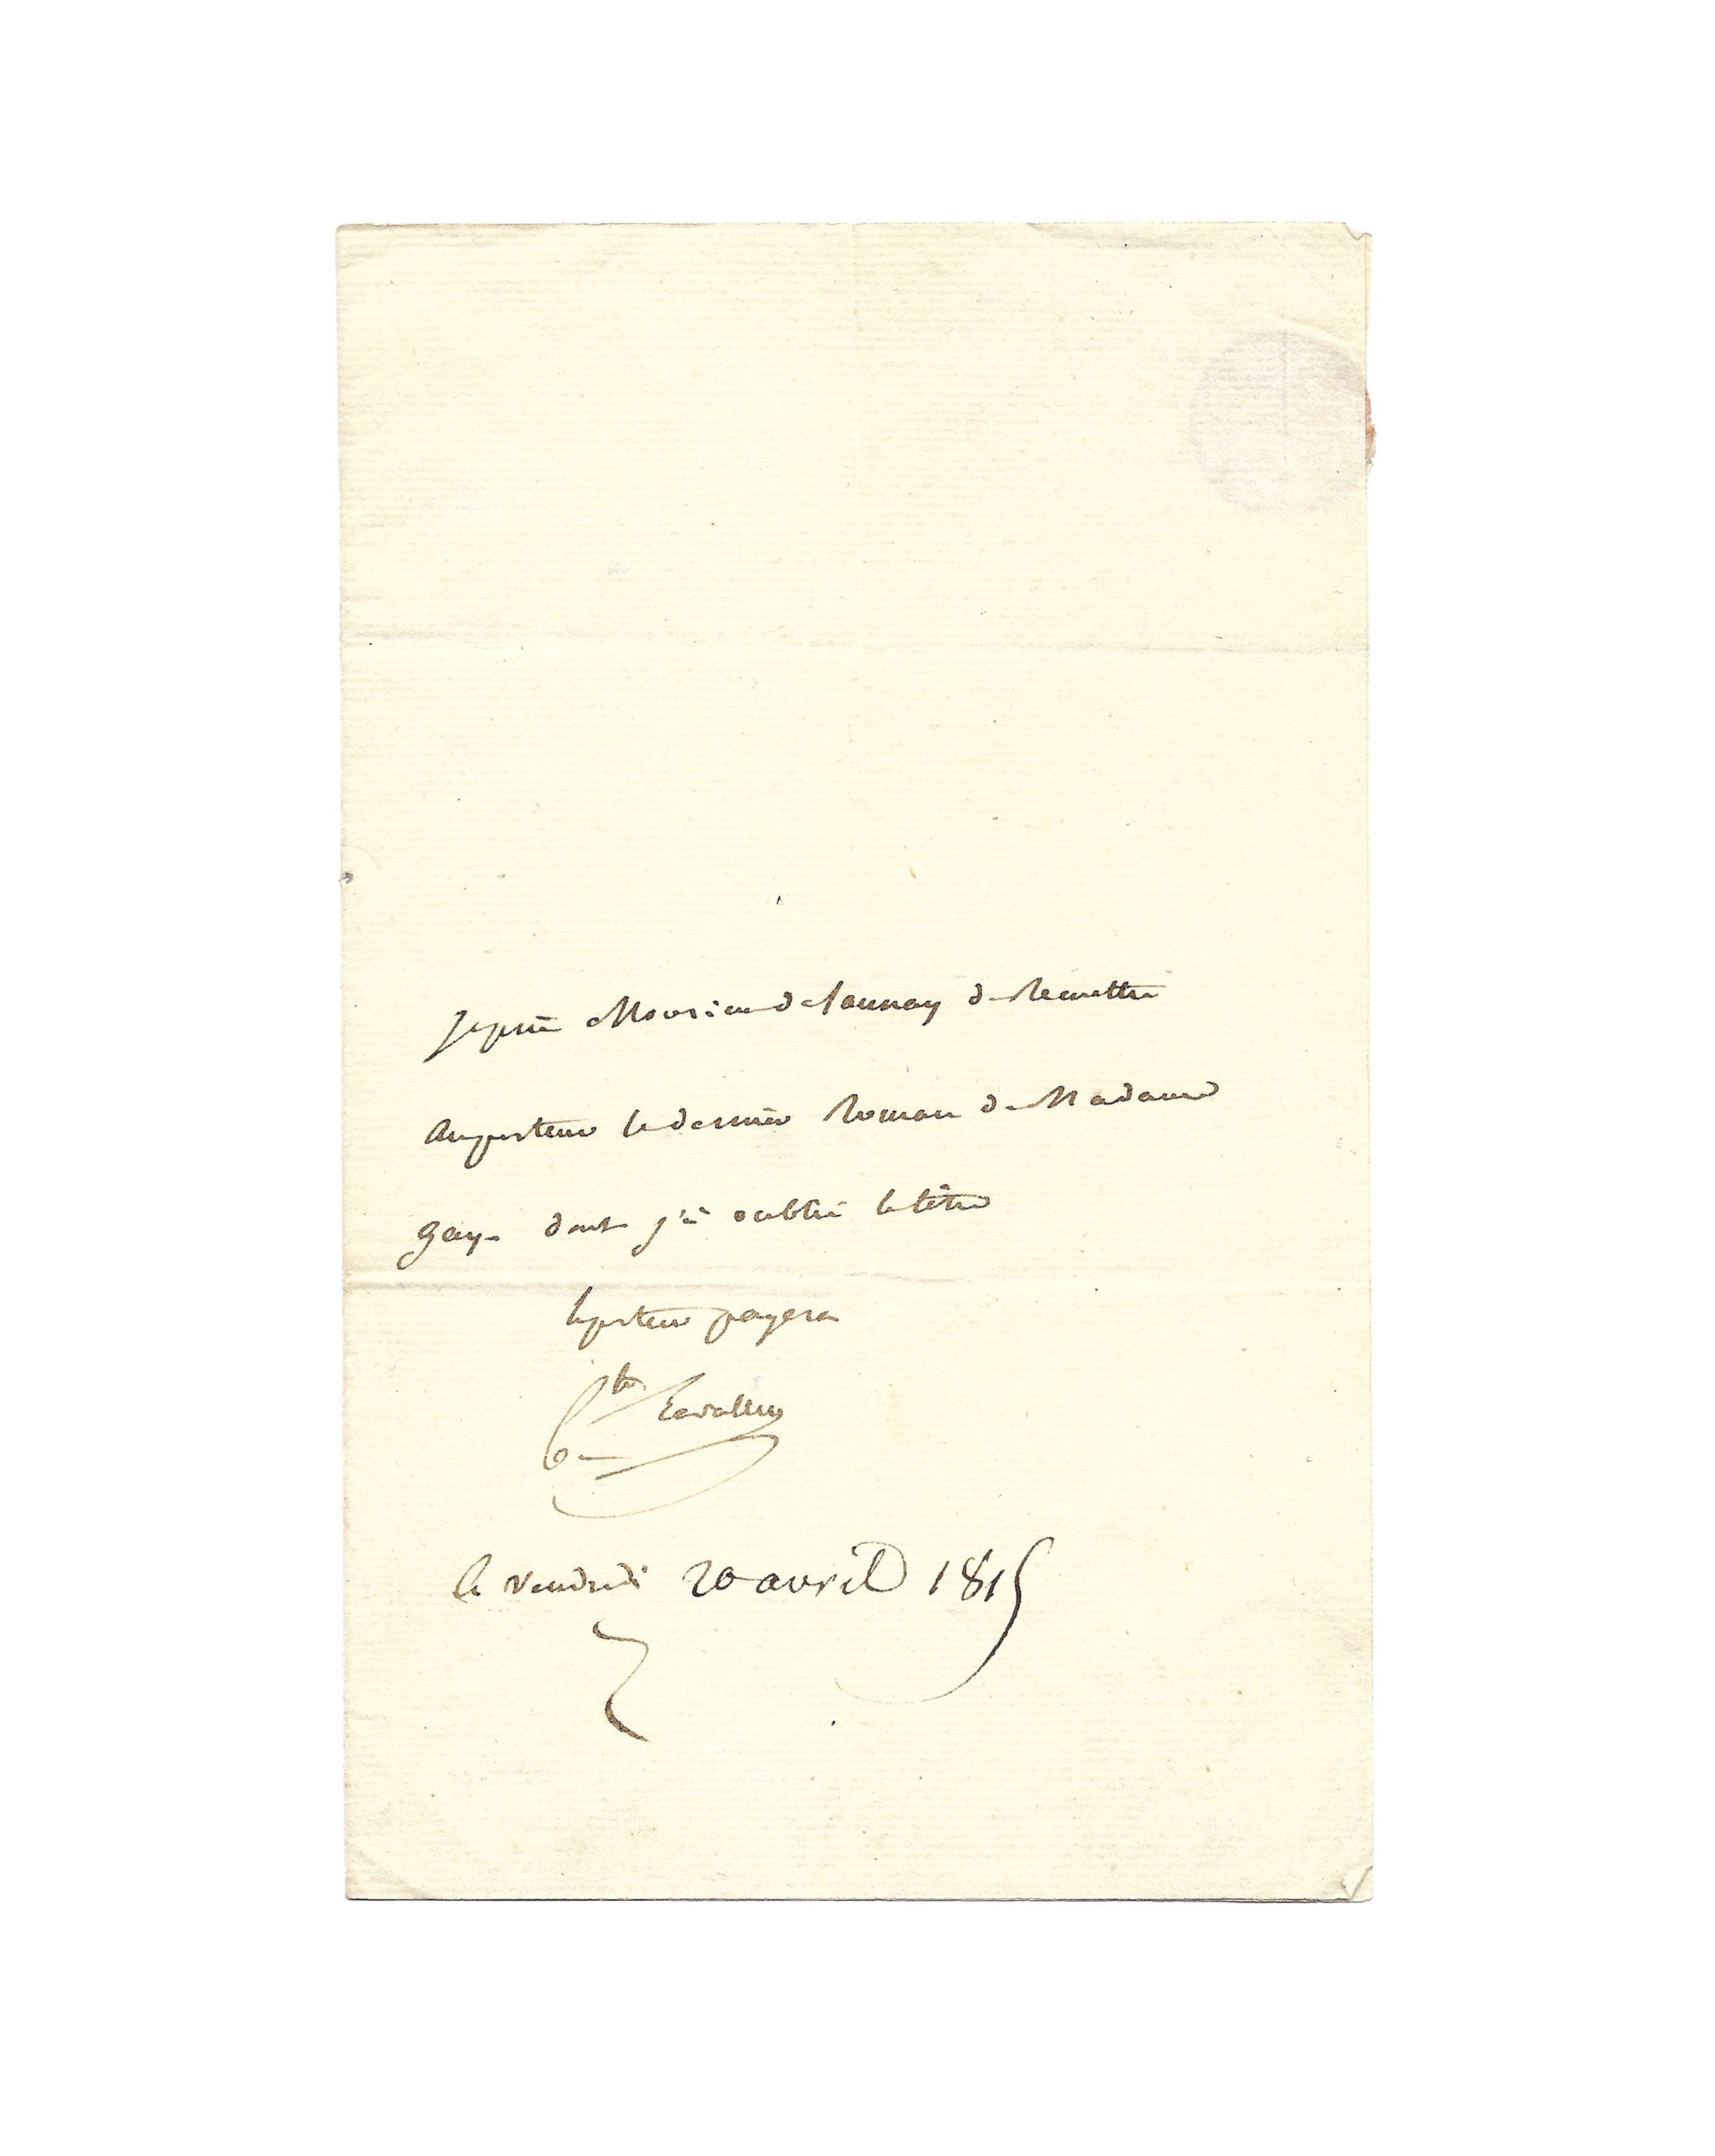 Je prie Monsieur delaunay de Remettre
au porteur le dernier Roman de Madame
gay. dont j'ai oublié le titre
le porteur payera
Cte Lavallette
le vendredi 20 avril 1815